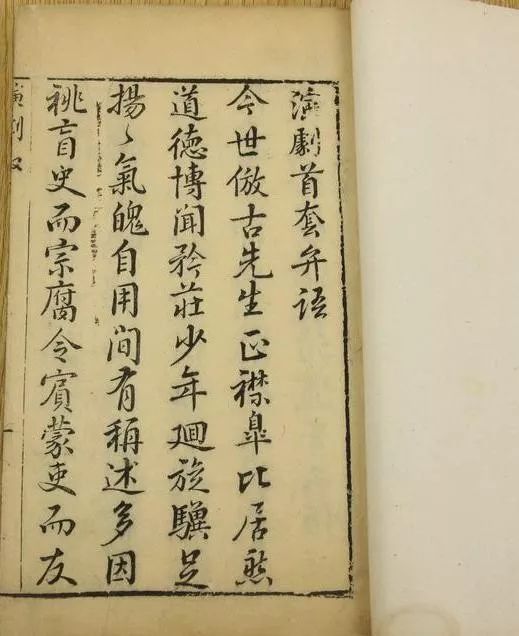 演劇首套弁语
今世倣古先生正襟臯比居然
道德博聞矜莊少年廻旋驥足
揚〻氣魄自用间有稱述多因
祧盲史而宗腐令賔蒙吏而友
演劇叙